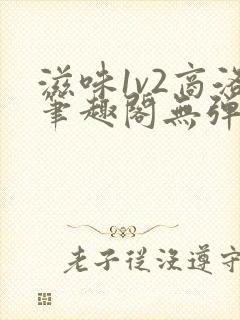 滋味1v2高洛
笔趣阁无弹
老子从没遵守